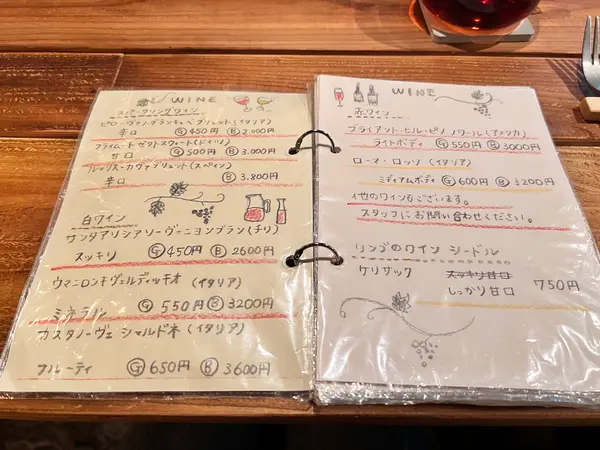 WINE
スパークリングワイン
ピロ・ヴァノ・ブランキュベ ブリュット(イタリア)
辛口 Ⓖ450円 Ⓑ2.000円
フライムート ゼクト スウィート(ドイツ)
甘口 Ⓖ500円 Ⓑ3.000円
(スペイン)
辛口 Ⓑ3.800円
白ワイン
サンタアリシア ソーヴィニヨンブラン(チリ)
スッキリ Ⓖ450円 Ⓑ2600円
ウマニロンキヴェルディッキオ (イタリア)
ミネラル Ⓖ550円 Ⓑ3200円
カスタノーヴェ シャルドネ(イタリア)
フルーティ Ⓖ650円 Ⓑ3600円
WINE
赤ワイン
ブライアント・ヒル・ピノ ノワール(アメリカ)
ライトボディ Ⓖ550円 Ⓑ3000円
ローマ・ロッソ (イタリア)
ミディアムボディ Ⓖ600円 Ⓑ3200円
他のワインもございます。
スタッフにお問い合わせください。
リンゴのワイン シードル
ケリサック スッキリ甘口
しっかり甘口 750円